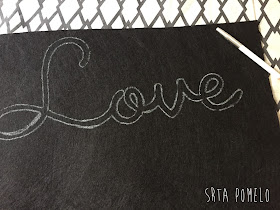 Love
SRTA POMELO